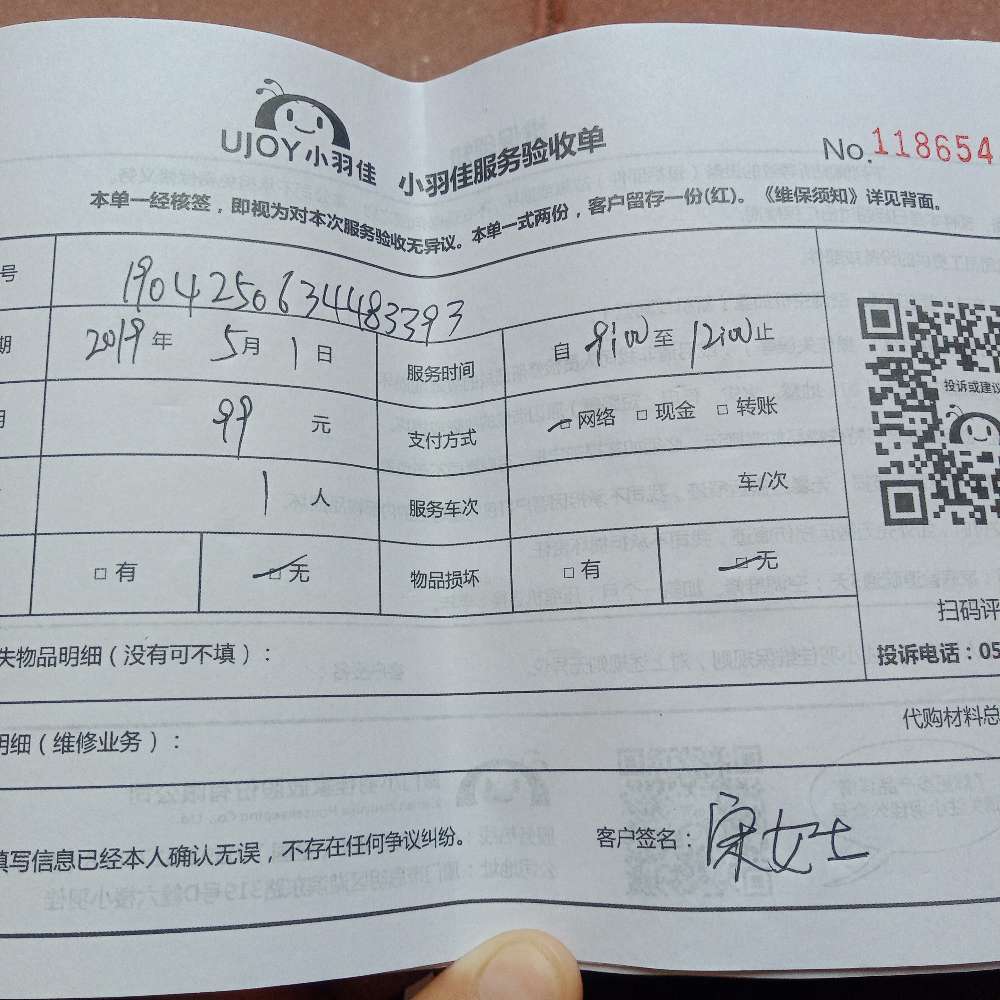 UJOY小羽佳 小羽佳服务验收单 No.118654
本单一经核签，即视为对本次服务验收无异议。本单一式两份，客户留存一份(红)。《维保须知》详见背面。
号 19042506344483393
期 2019年 5月 1日 服务时间 自 9:00 至 12:00 止
99 元 支付方式 □网络 □现金 □转账
1 人 服务车次 车/次
□有 □无 物品损坏 □有 □无
投诉或建议
扫码评
投诉电话：05
失物品明细（没有可不填）：
代购材料总
明细（维修业务）：
填写信息已经本人确认无误，不存在任何争议纠纷。 客户签名：宋女士